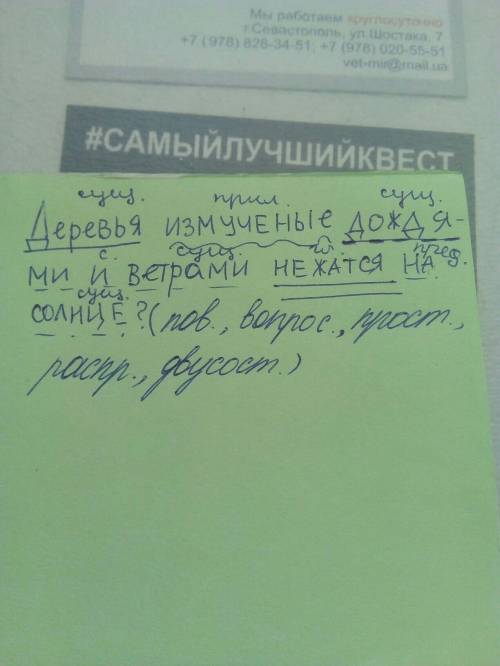 Мы работаем круглосуточно
г.Севастополь, ул.Шостака, 7
+7 (978) 828-34-51; +7 (978) 020-55-51
vet-mir@mail.ua
#САМЫЙЛУЧШИЙКВЕСТ
сущ. прил. сущ.
Деревья измученые дождя-
с. сущ. пред.
ми и ветрами нежатся на
сущ.
солнце? (пов., вопрос., прост.,
распр., двусост.)